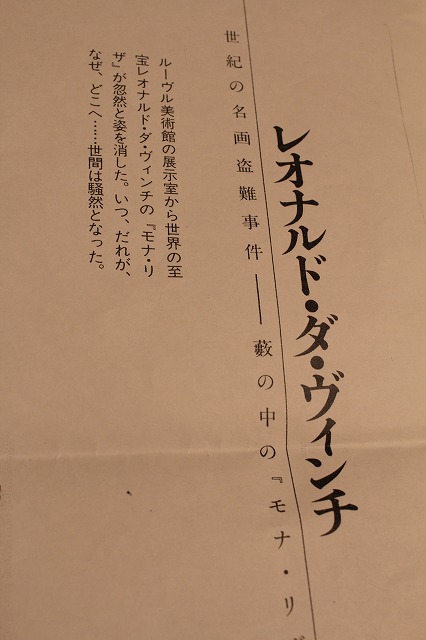 レオナルド・ダ・ヴィンチ
世紀の名画盗難事件――藪の中の『モナ・リ
ルーヴル美術館の展示室から世界の至
宝レオナルド・ダ・ヴィンチの『モナ・リ
ザ』が忽然と姿を消した。いつ、だれが、
なぜ、どこへ……世間は騒然となった。